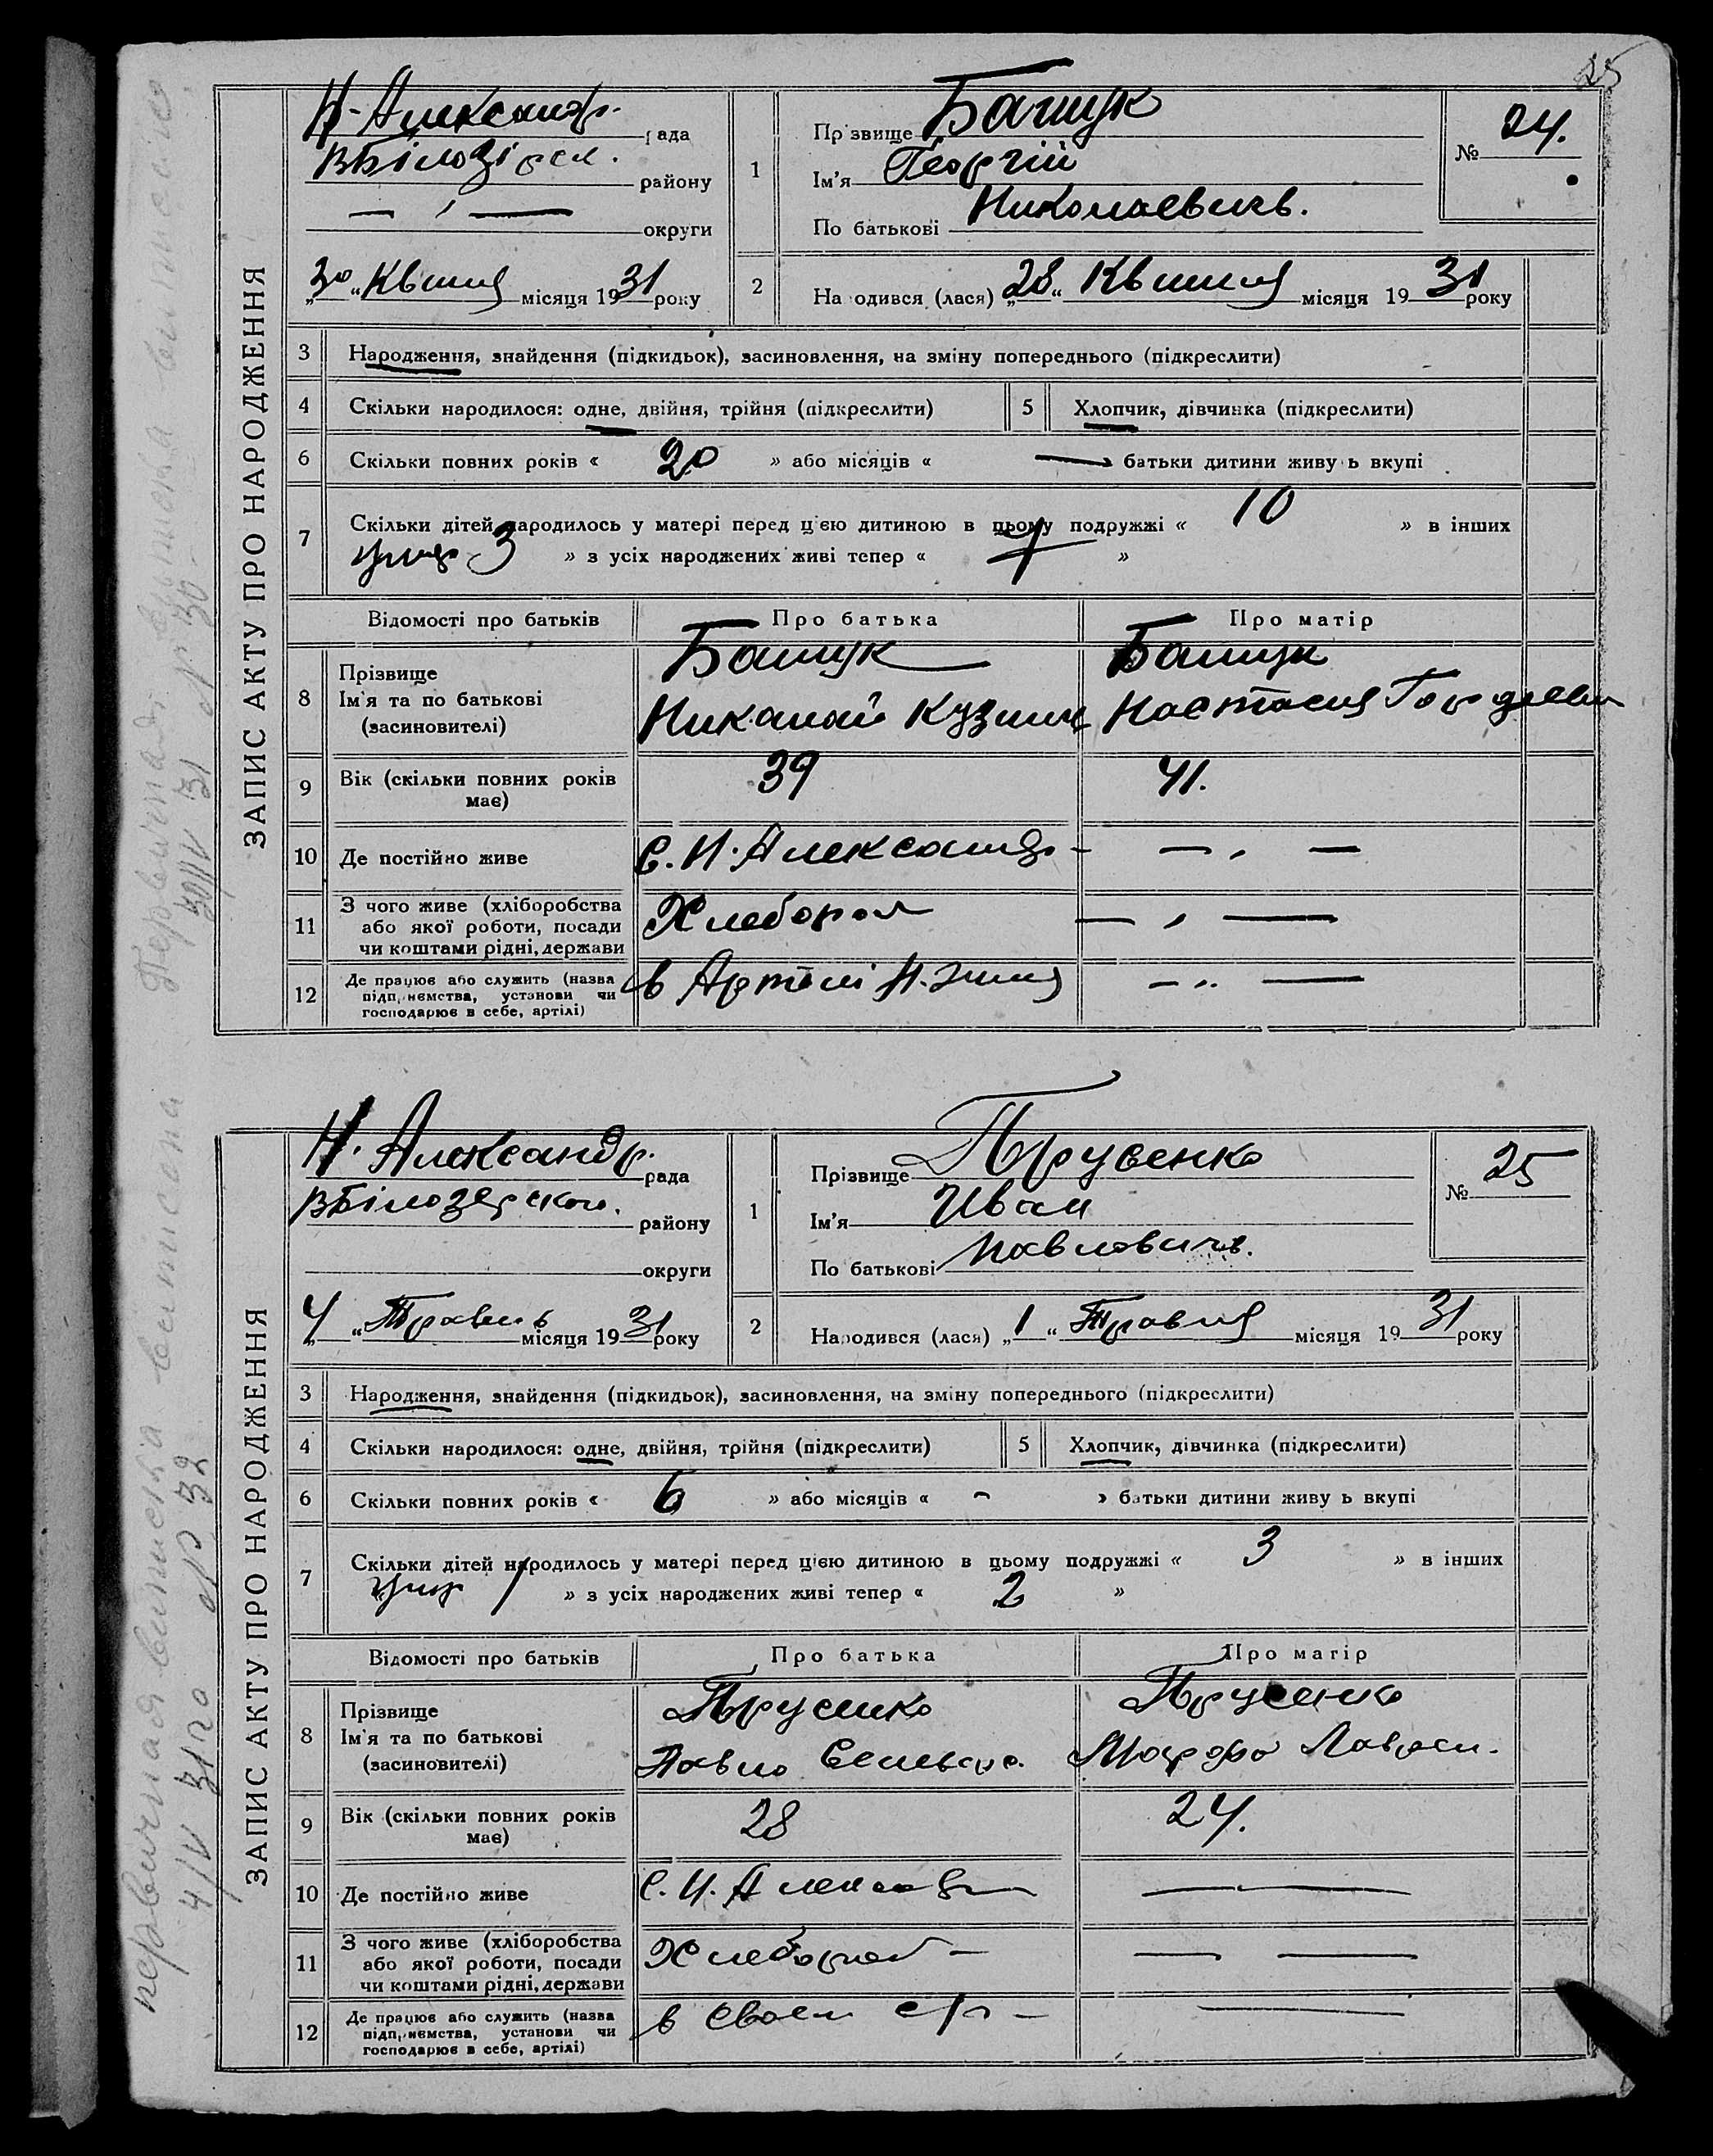 25
ЗАПИС АКТУ ПРО НАРОДЖЕННЯ
Н-Александр. рада
ВБілозірск. району
— ‚ — округи
„30“ Квітня місяця 1931 року
1 Прізвище Башук
Ім'я Георгій
По батькові Николаевичь.
№ 24.
2 Народився (лася) „28“ Квітня місяця 1931 року
3 Народження, знайдення (підкидьок), засиновлення, на зміну попереднього (підкреслити)
4 Скільки народилося: одне, двійня, трійня (підкреслити) 5 Хлопчик, дівчинка (підкреслити)
6 Скільки повних років « 20 » або місяців « — » батьки дитини живуть вкупі
7 Скільки дітей народилось у матері перед цією дитиною в цьому подружжі « 10 » в інших
3 » з усіх народжених живі тепер « 7 »
Відомості про батьків Про батька Про матір
8 Прізвище Башук Башук
Ім'я та по батькові (засиновителі) Николай Кузмич Настасия Гордеевн
9 Вік (скільки повних років має) 39 41.
10 Де постійно живе с. Н. Александр- — „ —
11 З чого живе (хліборобства або якої роботи, посади чи коштами рідні, держави Хлебороб — „ —
12 Де працює або служить (назва підприємства, установи чи господарює в себе, артілі) в Артілі — „ —
ЗАПИС АКТУ ПРО НАРОДЖЕННЯ
Н. Александр. рада
ВБілозерского. району
округи
„4“ Травень місяця 1931 року
1 Прізвище Прусенко
Ім'я Иван
По батькові Павловичь.
№ 25
2 Народився (лася) „1“ Травня місяця 1931 року
3 Народження, знайдення (підкидьок), засиновлення, на зміну попереднього (підкреслити)
4 Скільки народилося: одне, двійня, трійня (підкреслити) 5 Хлопчик, дівчинка (підкреслити)
6 Скільки повних років « 6 » або місяців « - » батьки дитини живуть вкупі
7 Скільки дітей народилось у матері перед цією дитиною в цьому подружжі « 3 » в інших
1 » з усіх народжених живі тепер « 2 »
Відомості про батьків Про батька Про матір
8 Прізвище Прусенко Прусенко
Ім'я та по батькові (засиновителі) Павло Марфа
9 Вік (скільки повних років має) 28 24.
10 Де постійно живе с. Н. Александр —
11 З чого живе (хліборобства або якої роботи, посади чи коштами рідні, держави Хлебороб — — —
12 Де працює або служить (назва підприємства, установи чи господарює в себе, артілі) в своем с/г — —
Первичная виписка виписано
30/IV 31 № 30
первичная виписка виписана
4/V 31 го № 32